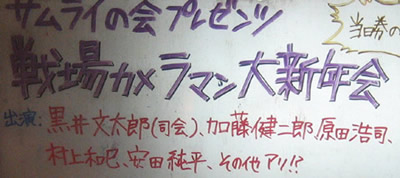 サムライの会プレゼンツ
当日券の
戦場カメラマン大新年会
出演:黒井文太郎(司会)、加藤健二郎、原田浩司、
村上和巳、安田純平、その他アリ!?